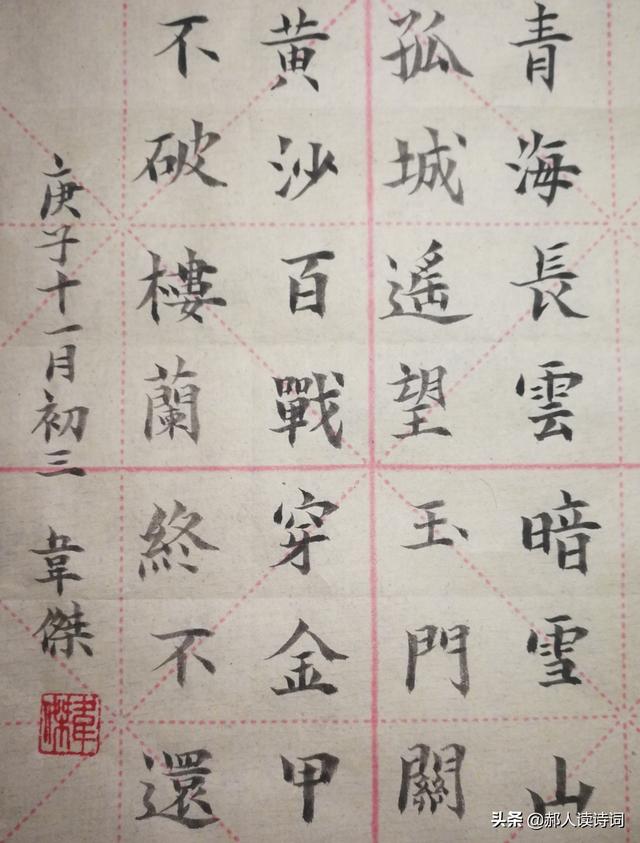 青海長雲暗雪山
孤城遥望玉門關
黃沙百戰穿金甲
不破樓蘭終不還
庚子十一月初三 韋傑
韋傑
头条 @郝人读诗词